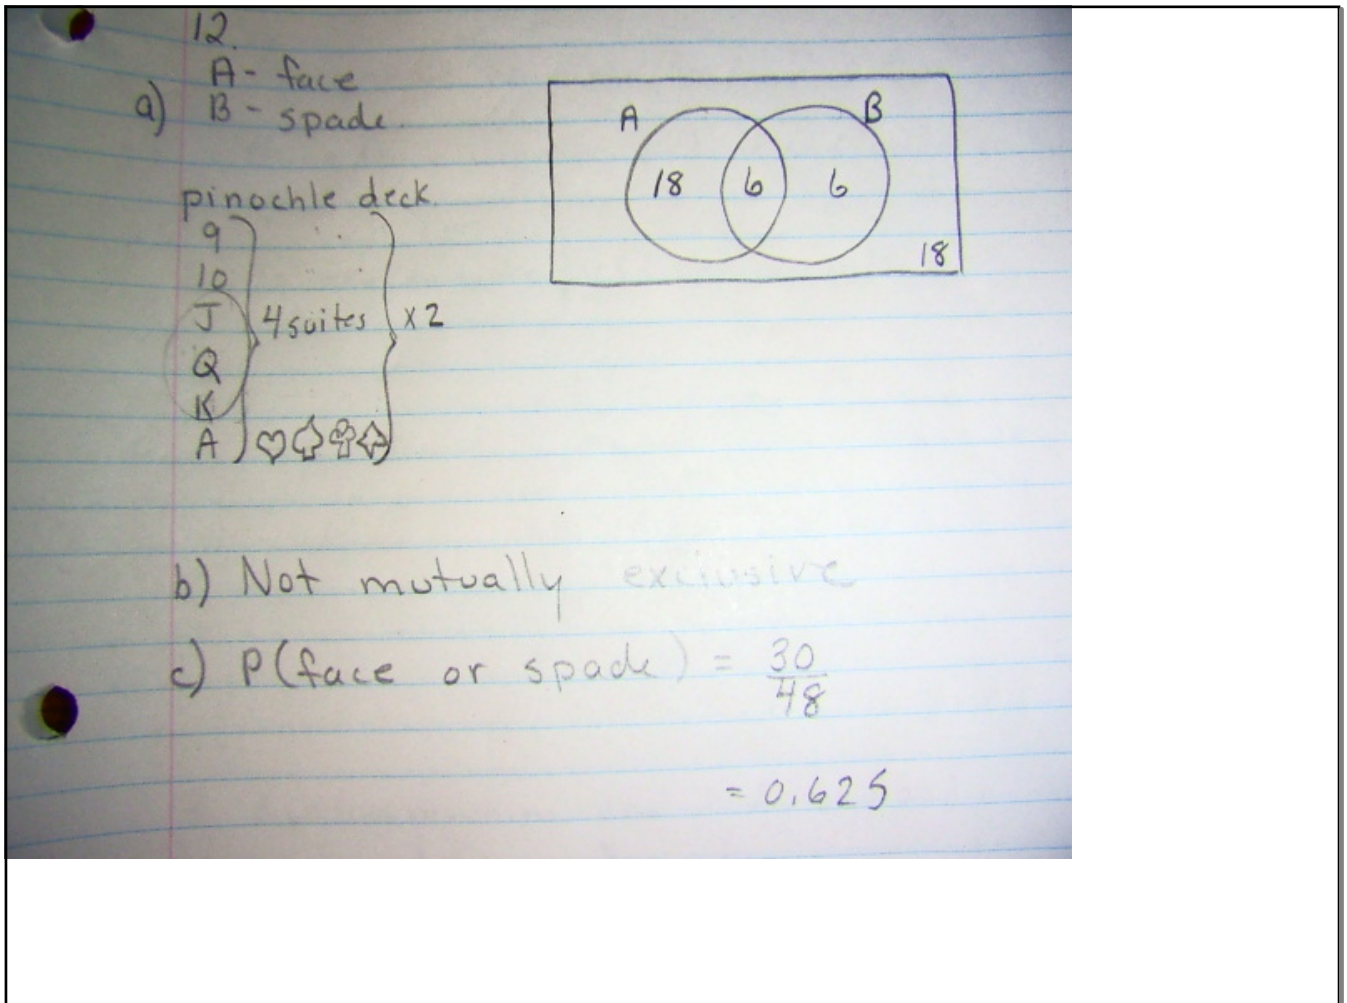 12.
A - face
a) B - spade.
pinochle deck.
9
10
J
Q
K
A
4 suites
x 2
A
B
18
6
6
18
b) Not mutually exclusive
c) P(face or spade) = 30/48
= 0.625